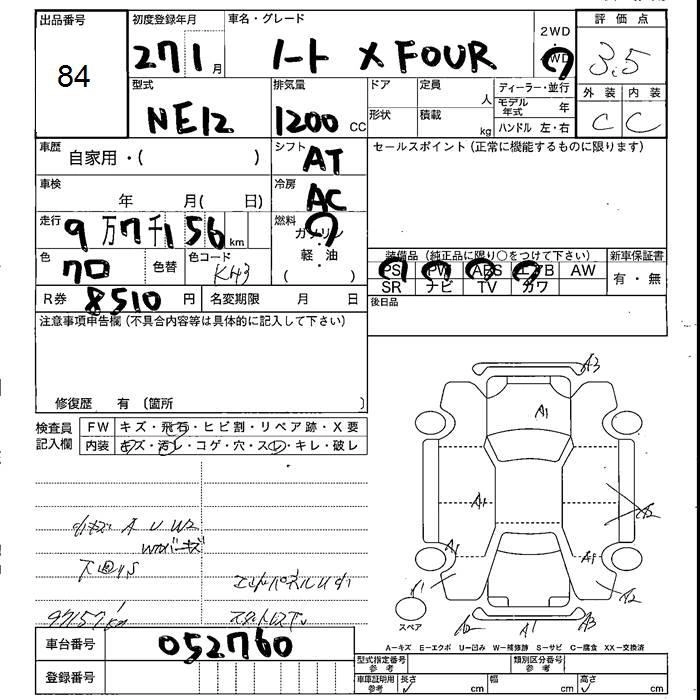 出品番号 84
初度登録年月 27 1月
車名・グレード ノート X FOUR
2WD
4WD
評価点 3.5
型式 NE12
排気量 1200 CC
ドア 形状
定員 人
積載 kg
ディーラー・並行
モデル年式 年
ハンドル 左・右
外装 内装
C C
車歴 自家用・( )
シフト AT
セールスポイント(正常に機能するものに限ります)
車検 年 月( 日)
冷房 AC
走行 9万7千156km
燃料 ガソリン・軽油 ( )
色 クロ 色替
色コード KH3
装備品 (純正品に限り○をつけて下さい)
新車保証書
PS PW ABS エアB AW
有・無
SR ナビ TV カワ
R券 8510円
名変期限 月 日
後日品
注意事項申告欄(不具合内容等は具体的に記入して下さい)
修復歴 有 〔箇所 〕
検査員記入欄
FW キズ・飛石・ヒビ割・リペア跡・X要
内装 キズ・汚レ・コゲ・穴・スレ・キレ・破レ
小キズ A U W2
下廻りS
97157km
A3
A1
A1
A2
A1
A2
スペア
A2 A1 A3
A-キズ E-エクボ U-凹み W-補修跡 S-サビ C-腐食 XX-交換済
車台番号 052760
登録番号
型式指定番号 参考
類別区分番号 参考
車庫証明用 参考 長さ cm 幅 cm 高さ cm